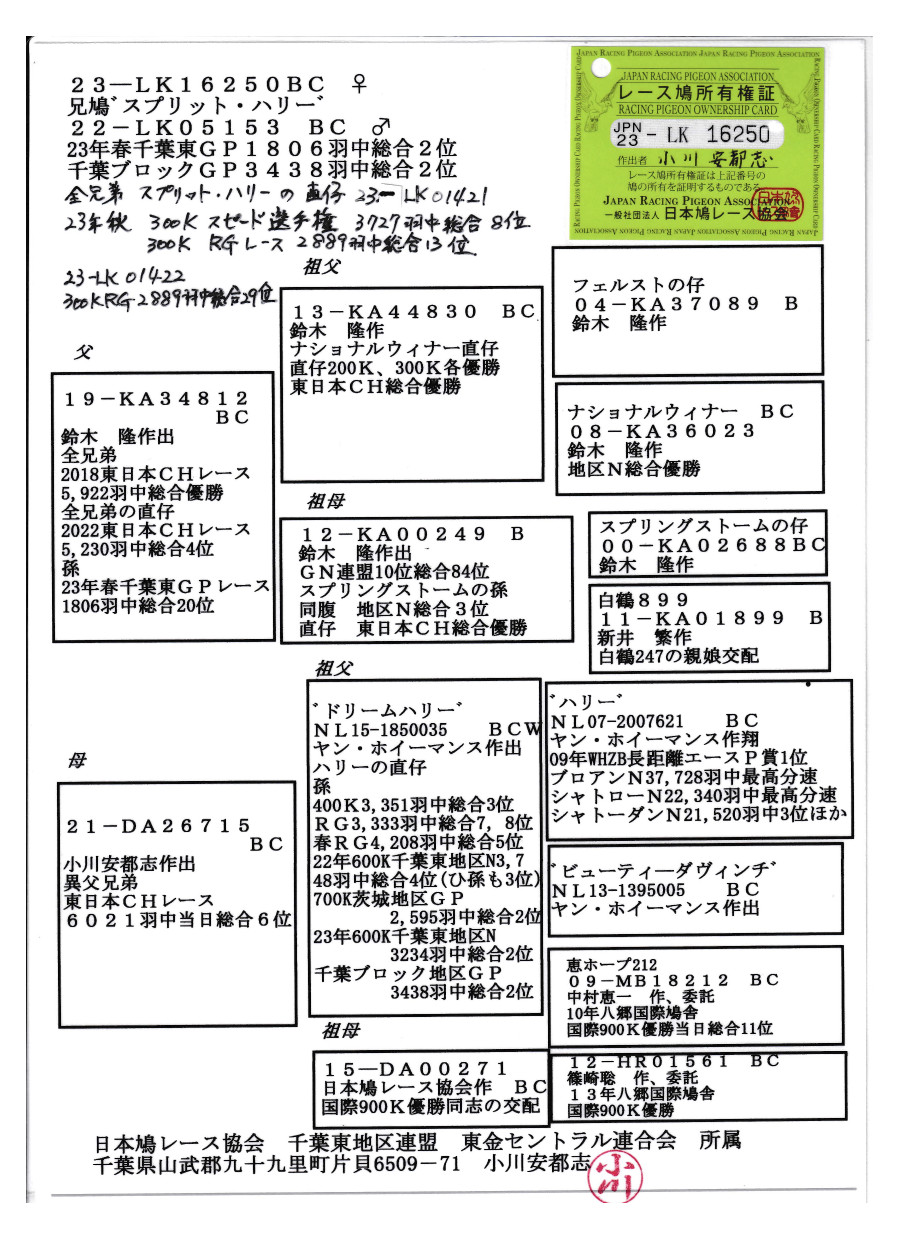 23―LK16250BC ♀
兄鳩゛スプリット・ハリー゛
22－LK05153 BC ♂
23年春千葉東GP1806羽中総合２位
千葉ブロックGP3438羽中総合２位
全兄弟 スプリット・ハリーの直仔 23-LK01421
23年秋 300K スピード選手権 3727羽中総合8位
300K RGレース 2889羽中総合13位
23-LK01422
300KRG-2889羽中総合29位
JAPAN RACING PIGEON ASSOCIATION
レース鳩所有権証
RACING PIGEON OWNERSHIP CARD
JPN
23 - LK 16250
作出者 小川安都志
レース鳩所有権証は上記番号の
鳩の所有を証明するものである
JAPAN RACING PIGEON ASSOCIATION
一般社団法人 日本鳩レース協会
父
19－KA34812
BC
鈴木 隆作出
全兄弟
2018東日本CHレース
5,922羽中総合優勝
全兄弟の直仔
2022東日本CHレース
5,230羽中総合4位
孫
23年春千葉東GPレース
1806羽中総合20位
祖父
13－KA44830 BC
鈴木 隆作
ナショナルウィナー直仔
直仔200K、300K各優勝
東日本CH総合優勝
フェルストの仔
04－KA37089 B
鈴木 隆作
ナショナルウィナー BC
08－KA36023
鈴木 隆作
地区N総合優勝
祖母
12－KA00249 B
鈴木 隆作出
GN連盟10位総合84位
スプリングストームの孫
同腹 地区N総合３位
直仔 東日本CH総合優勝
スプリングストームの仔
00－KA02688BC
鈴木 隆作
白鶴899
11－KA01899 B
新井 繁作
白鶴247の親娘交配
母
21－DA26715
BC
小川安都志作出
異父兄弟
東日本CHレース
6021羽中当日総合６位
祖父
゛ドリームハリー゛
NL15-1850035 BCW
ヤン・ホイーマンス作出
ハリーの直仔
孫
400K3,351羽中総合3位
RG3,333羽中総合7, 8位
春RG4,208羽中総合5位
22年600K千葉東地区N3,7
48羽中総合4位(ひ孫も3位)
700K茨城地区GP
2,595羽中総合2位
23年600K千葉東地区N
3234羽中総合2位
千葉ブロック地区GP
3438羽中総合2位
゛ハリー゛
NL07-2007621 BC
ヤン・ホイーマンス作翔
09年WHZB長距離エースP賞1位
ブロアンN37,728羽中最高分速
シャトローN22,340羽中最高分速
シャトーダンN21,520羽中3位ほか
゛ビューティーダヴィンチ゛
NL13-1395005 BC
ヤン・ホイーマンス作出
祖母
15―DA00271
日本鳩レース協会作 BC
国際900K優勝同志の交配
恵ホープ212
09－MB18212 BC
中村恵一 作、委託
10年八郷国際鳩舎
国際900K優勝当日総合11位
12－HR01561 BC
篠崎聡 作、委託
13年八郷国際鳩舎
国際900K優勝
日本鳩レース協会 千葉東地区連盟 東金セントラル連合会 所属
千葉県山武郡九十九里町片貝6509－71 小川安都志
小川